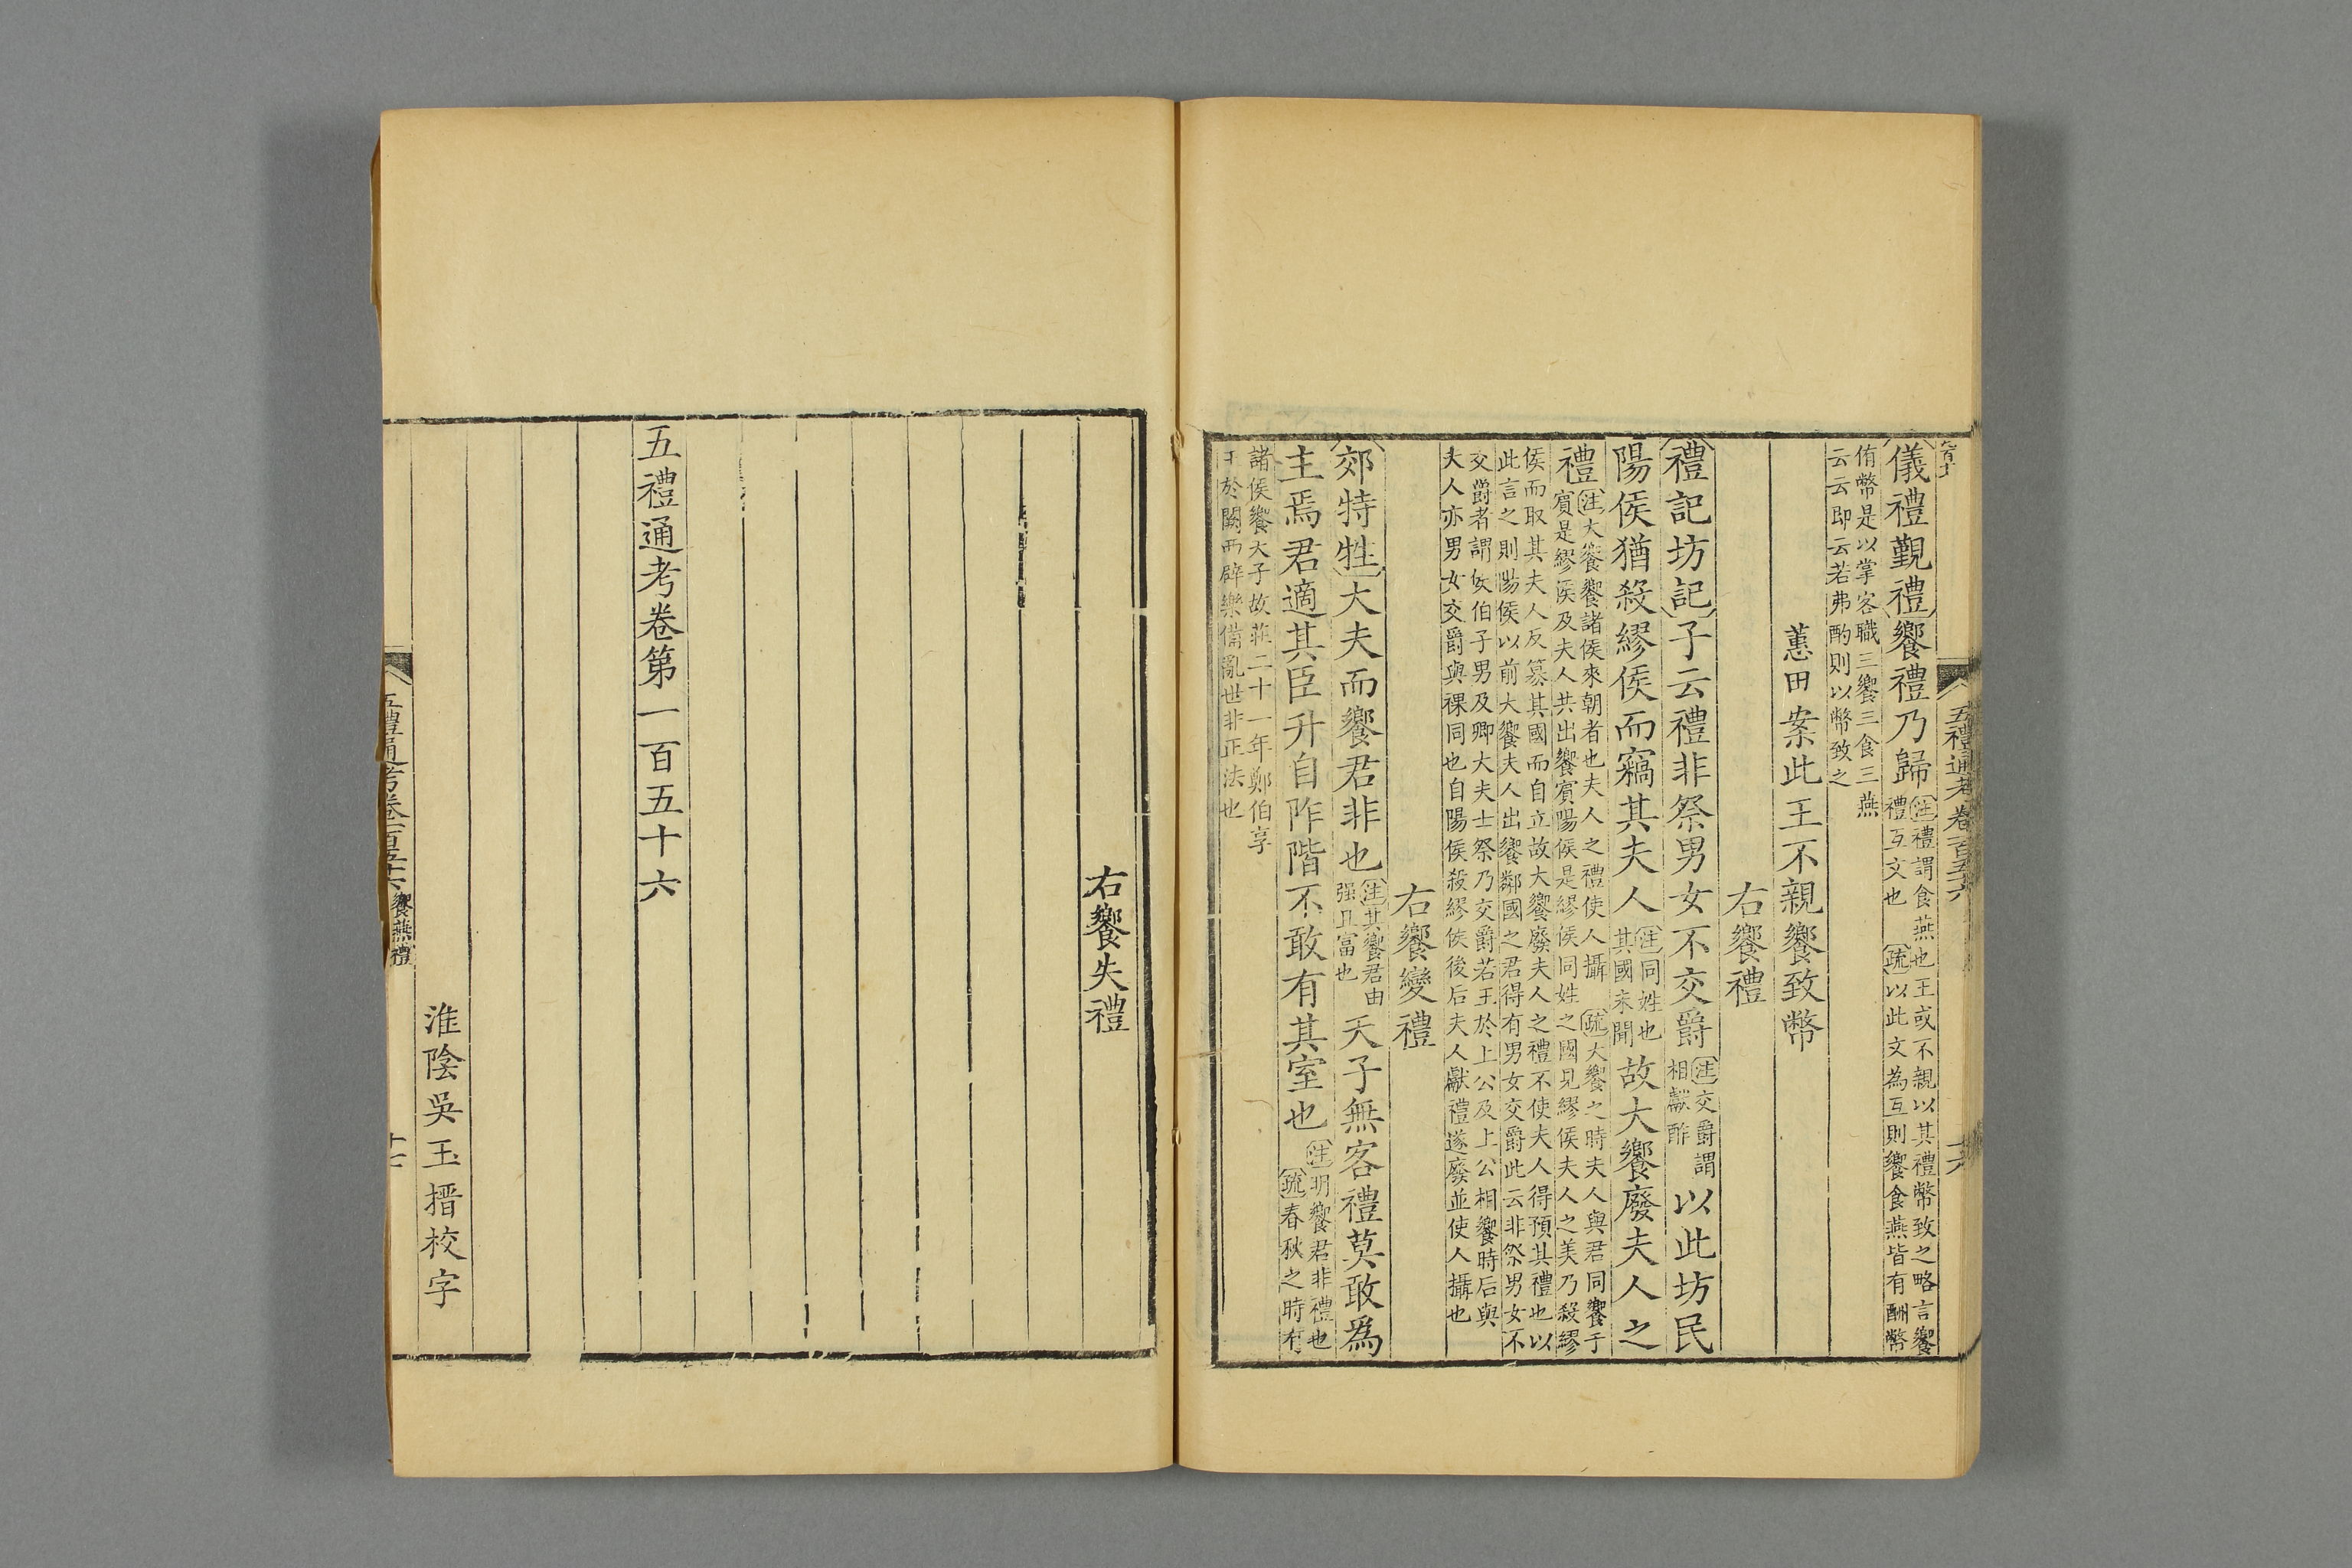 五禮通考卷一百五十六
十六
儀禮覲禮饗禮乃歸注禮謂食燕也王或不親以其禮幣致之略言饗
禮互文也　疏以此文為互則饗食燕皆有酬幣
侑幣是以掌客職三饗三食三燕
云云即云若弗酌則以幣致之
蕙田案此王不親饗致幣
右饗禮
禮記坊記子云禮非祭男女不交爵注交爵謂相獻酢以此坊民
陽侯猶殺繆侯而竊其夫人注同姓也其國未聞故大饗廢夫人之
禮注大饗饗諸侯來朝者也夫人之禮使人攝　疏大饗之時夫人與君同饗于
賓是繆侯及夫人共出饗賓陽侯是繆侯同姓之國見繆侯夫人之美乃殺繆
侯而取其夫人反篡其國而自立故大饗廢夫人之禮不使夫人得預其禮也以
此言之則陽侯以前大饗夫人出饗鄰國之君得有男女交爵此云非祭男女不
交爵者謂侯伯子男及卿大夫士祭乃交爵若王於上公及上公相饗時后與
夫人亦男女交爵與祼同也自陽侯殺繆侯後后夫人獻禮遂廢並使人攝也
右饗變禮
郊特牲大夫而饗君非也注其饗君由強且富也天子無客禮莫敢爲
主焉君適其臣升自阼階不敢有其室也注明饗君非禮也
疏春秋之時有
諸侯饗天子故莊二十一年鄭伯享
王於闕西辟樂備亂世非正法也
右饗失禮
五禮通考卷第一百五十六
淮陰吳玉搢校字
五禮通考卷一百五十六饗燕禮
十七